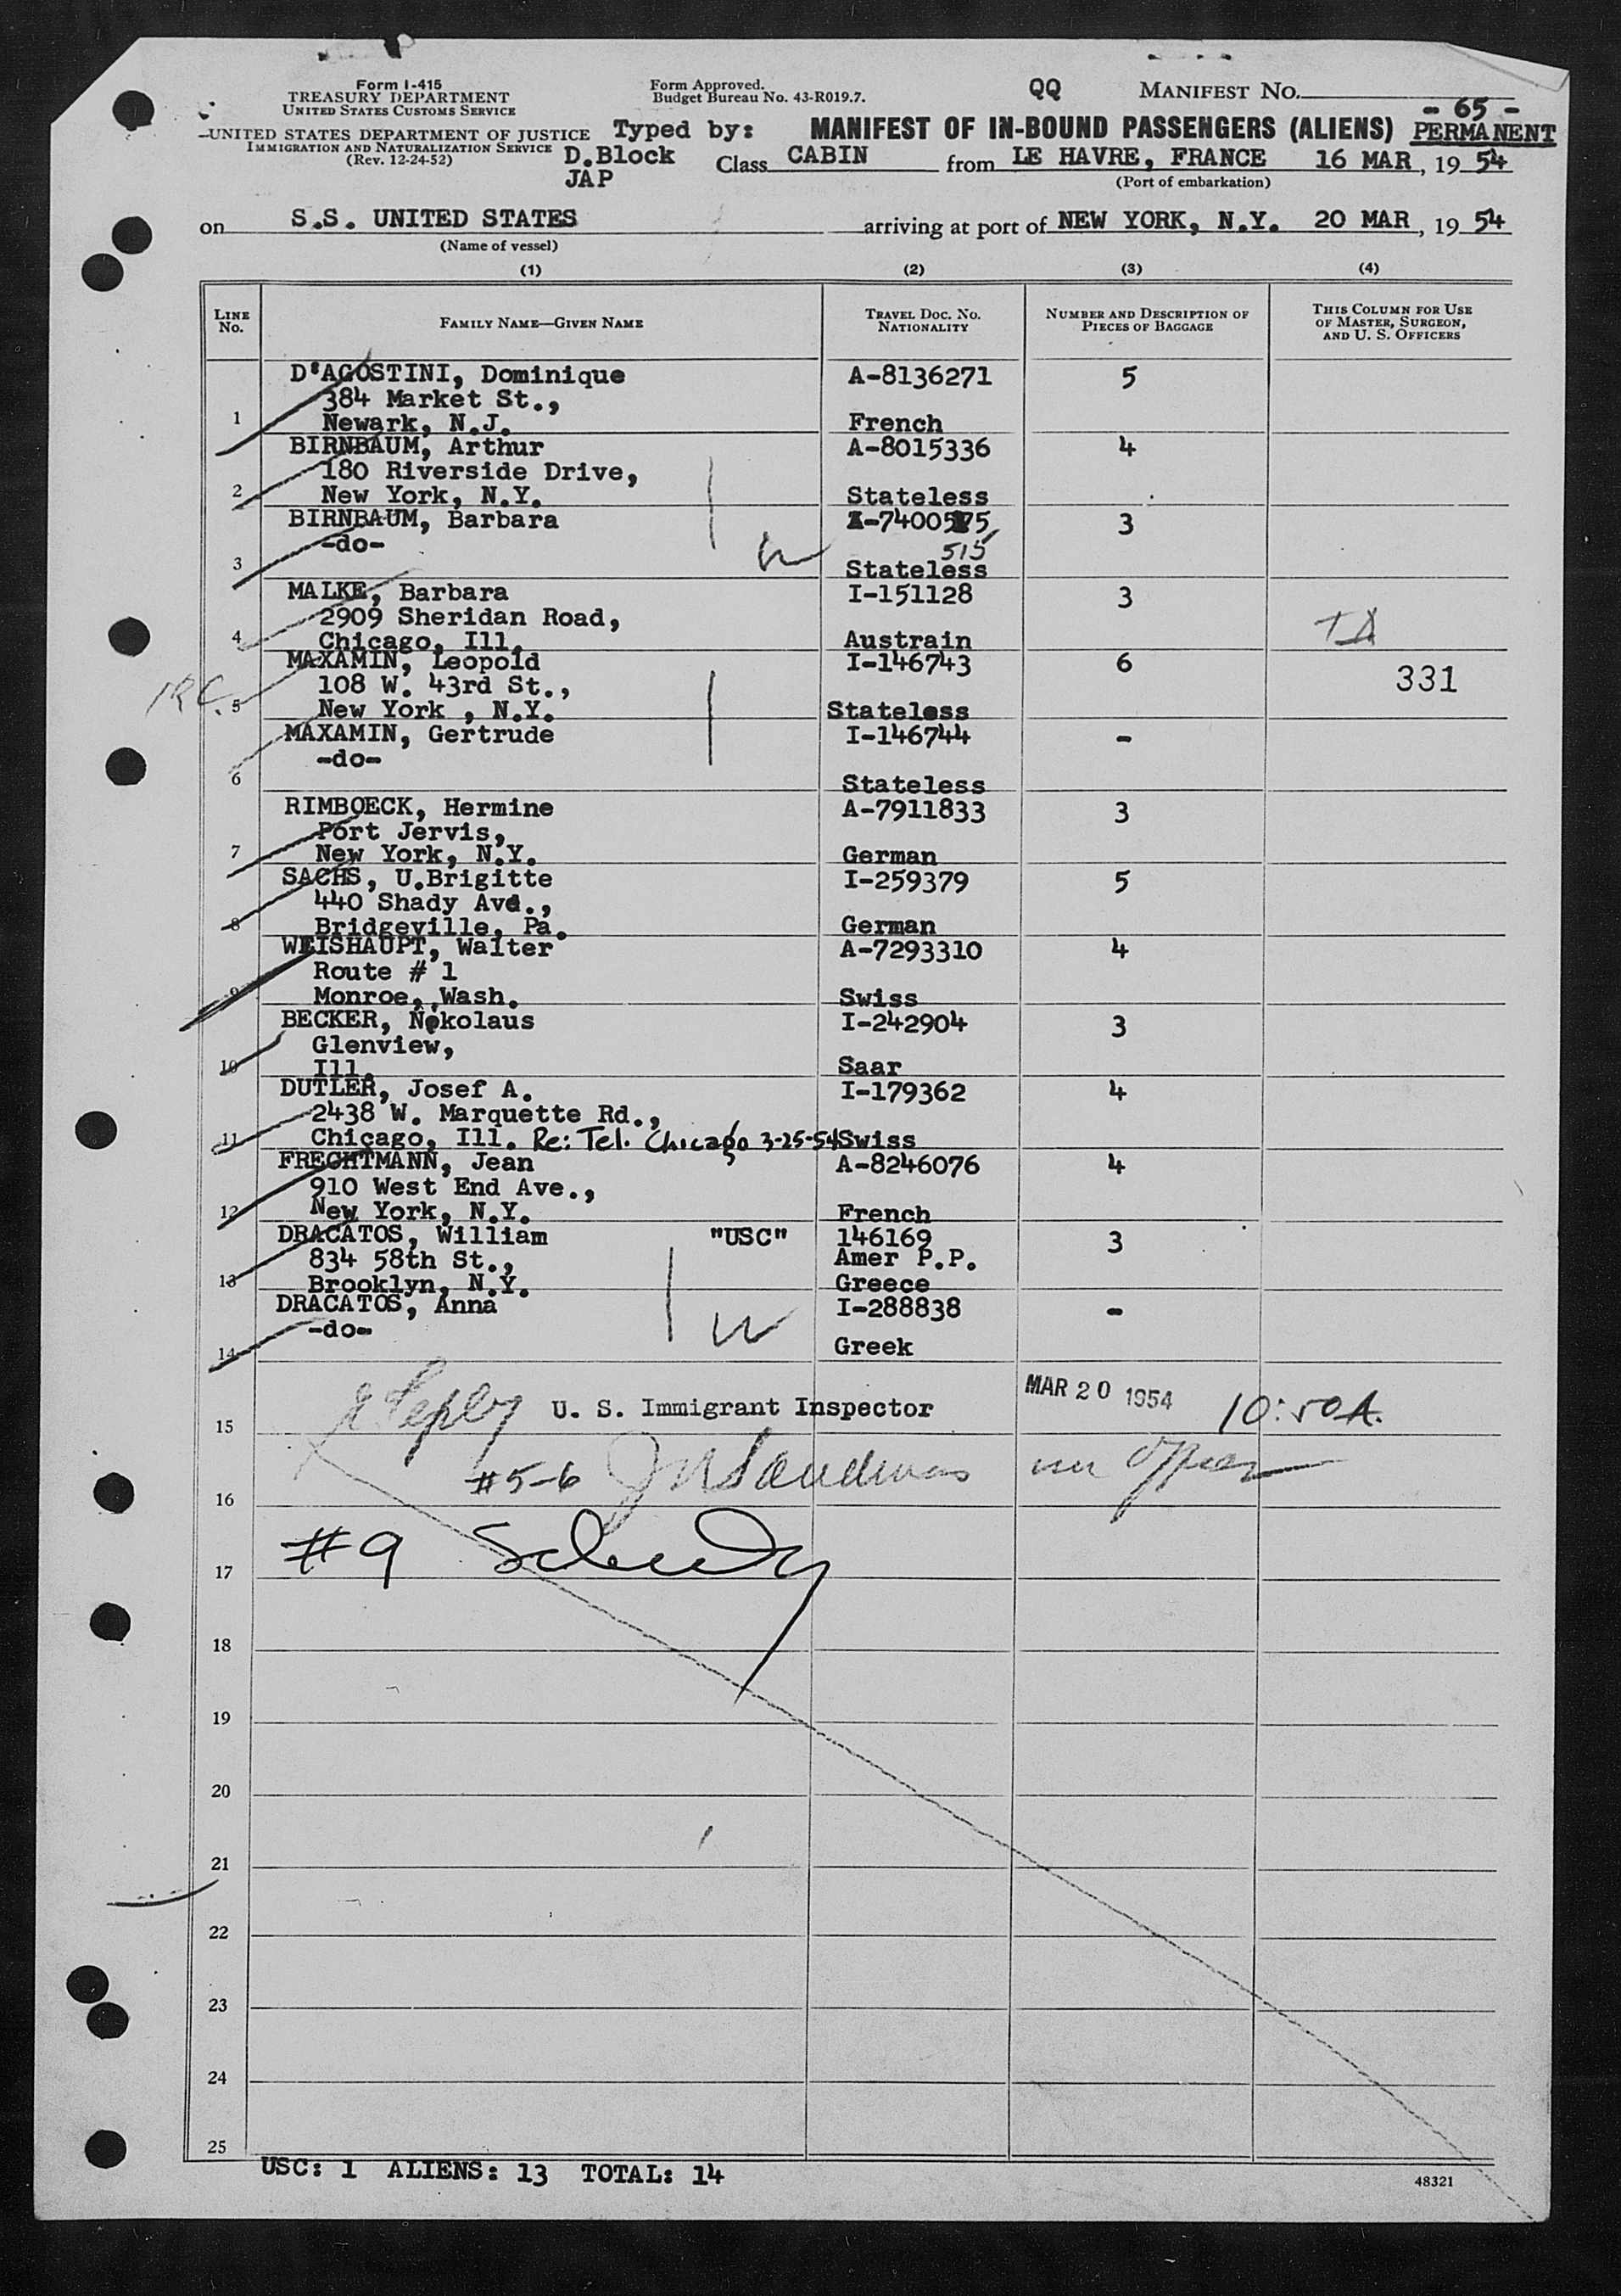 Form I-415
TREASURY DEPARTMENT
UNITED STATES CUSTOMS SERVICE
UNITED STATES DEPARTMENT OF JUSTICE
IMMIGRATION AND NATURALIZATION SERVICE
(Rev. 12-24-52)
Form Approved.
Budget Bureau No. 43-R019.7.
QQ MANIFEST NO.
- 65 -
Typed by: MANIFEST OF IN-BOUND PASSENGERS (ALIENS) PERMANENT
D.Block
JAP
Class CABIN from LE HAVRE, FRANCE 16 MAR, 19 54
(Port of embarkation)
on S.S. UNITED STATES arriving at port of NEW YORK, N.Y. 20 MAR, 19 54
(Name of vessel)
(1) (2) (3) (4)
LINE No. FAMILY NAME—GIVEN NAME TRAVEL DOC. NO. NATIONALITY NUMBER AND DESCRIPTION OF PIECES OF BAGGAGE THIS COLUMN FOR USE OF MASTER, SURGEON, AND U. S. OFFICERS
D'AGOSTINI, Dominique A-8136271 5
384 Market St.,
1 Newark, N.J. French
BIRNBAUM, Arthur A-8015336 4
180 Riverside Drive,
2 New York, N.Y. Stateless
BIRNBAUM, Barbara A-7400575 3
-do- 515
3 Stateless
MALKE, Barbara I-151128 3
2909 Sheridan Road,
4 Chicago, Ill. Austrain
MAXAMIN, Leopold I-146743 6 331
108 W. 43rd St.,
5 New York , N.Y. Stateless
MAXAMIN, Gertrude I-146744 -
-do-
6 Stateless
RIMBOECK, Hermine A-7911833 3
Port Jervis,
7 New York, N.Y. German
SACHS, U.Brigitte I-259379 5
440 Shady Ave.,
8 Bridgeville, Pa. German
WEISHAUPT, Walter A-7293310 4
Route # 1
9 Monroe, Wash. Swiss
BECKER, Nikolaus I-242904 3
Glenview,
10 Ill. Saar
DUTLER, Josef A. I-179362 4
2438 W. Marquette Rd.,
11 Chicago, Ill. Re: Tel. Chicago 3-25-54 Swiss
FRECHTMANN, Jean A-8246076 4
910 West End Ave.,
12 New York, N.Y. French
DRACATOS, William "USC" 146169 3
834 58th St., Amer P.P.
13 Brooklyn, N.Y. Greece
DRACATOS, Anna I-288838 -
-do-
14 Greek
15 U. S. Immigrant Inspector MAR 20 1954 10:50A.
16 #5-6
17 #9
18
19
20
21
22
23
24
25
USC: 1 ALIENS: 13 TOTAL: 14
48321